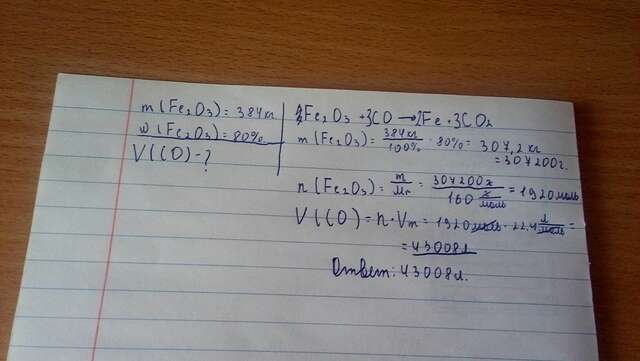 m(Fe₂O₃)=384кг
w(Fe₂O₃)=80%
V(CO)=?
Fe₂O₃ +3CO →2Fe+3CO₂
m(Fe₂O₃)= 384кг/100% · 80%= 307,2 кг
=307200г.
n(Fe₂O₃)= m/Mr = 307200г/160 г/моль =1920моль
V(CO)=n·Vm= 1920моль·22,4 л/моль=
=43008л
Ответ: 43008л.